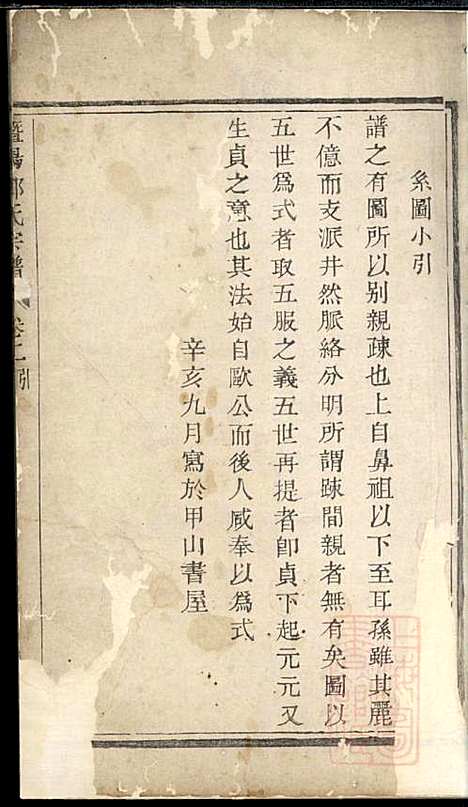 系圖小引
譜之有圖所以别親疎也上自鼻祖以下至耳孫雖其麗
不億而支派井然脈絡分明所謂疎間親者無有矣圖以
五世爲式者取五服之義五世再提者卽貞下起元元又
生貞之意也其法始自歐公而後人咸奉以為式
辛亥九月寫於甲山書屋
暨陽氏宗譜 卷二 引